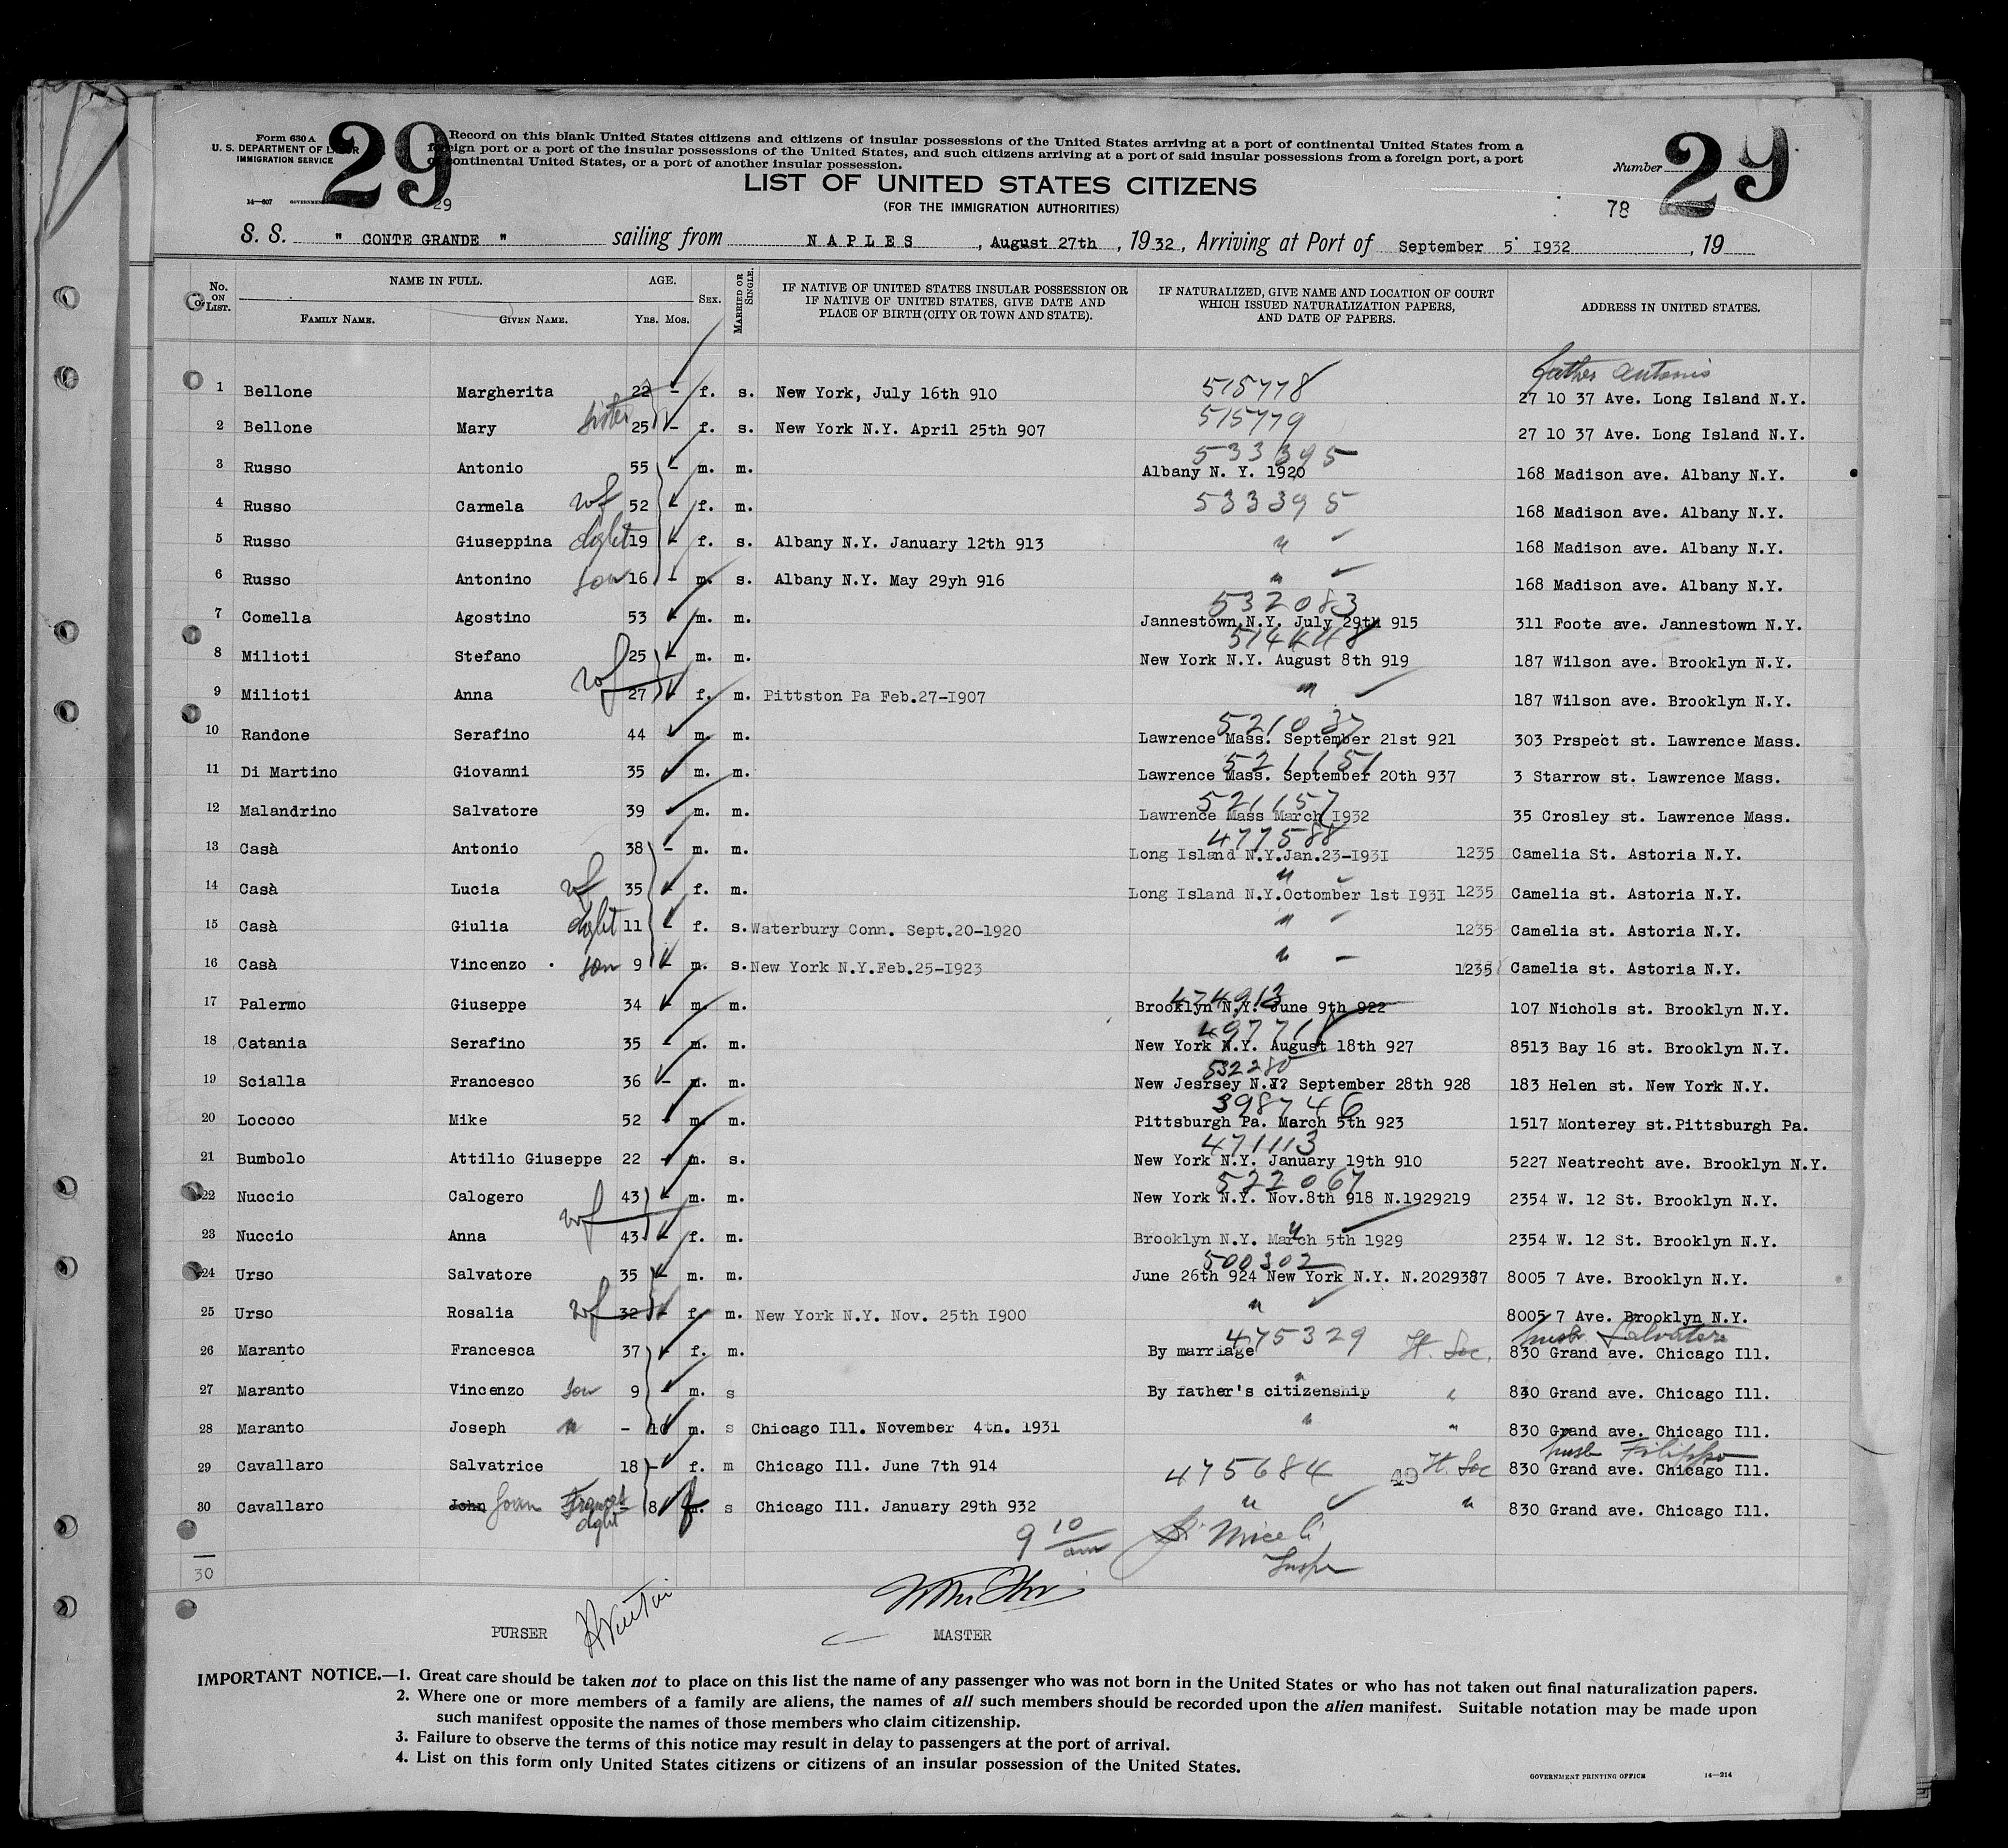 Form 630 A
U. S. DEPARTMENT OF LABOR
IMMIGRATION SERVICE
29
Record on this blank United States citizens and citizens of insular possessions of the United States arriving at a port of continental United States from a
foreign port or a port of the insular possessions of the United States, and such citizens arriving at a port of said insular possessions from a foreign port, a port
of continental United States, or a port of another insular possession.
Number 29
LIST OF UNITED STATES CITIZENS
(FOR THE IMMIGRATION AUTHORITIES)
14—607 GOVERNMENT
29
78
S. S. " CONTE GRANDE " sailing from N A P L E S , August 27th , 1932, Arriving at Port of September 5 1932 , 19
No. ON LIST. NAME IN FULL. FAMILY NAME. GIVEN NAME. AGE. YRS. MOS. SEX. MARRIED OR SINGLE. IF NATIVE OF UNITED STATES INSULAR POSSESSION OR IF NATIVE OF UNITED STATES, GIVE DATE AND PLACE OF BIRTH (CITY OR TOWN AND STATE). IF NATURALIZED, GIVE NAME AND LOCATION OF COURT WHICH ISSUED NATURALIZATION PAPERS, AND DATE OF PAPERS. ADDRESS IN UNITED STATES.
father Antonio
1 Bellone Margherita 22 - f. s. New York, July 16th 910 515778 27 10 37 Ave. Long Island N.Y.
2 Bellone Mary sister 25 - f. s. New York N.Y. April 25th 907 515779 27 10 37 Ave. Long Island N.Y.
533395
3 Russo Antonio 55 - m. m. Albany N. Y. 1920 168 Madison ave. Albany N.Y.
4 Russo Carmela wf 52 f. m. 533395 168 Madison ave. Albany N.Y.
5 Russo Giuseppina dght 19 - f. s. Albany N.Y. January 12th 913 " 168 Madison ave. Albany N.Y.
6 Russo Antonino son 16 - m. s. Albany N.Y. May 29yh 916 " 168 Madison ave. Albany N.Y.
532083
7 Comella Agostino 53 m. m. Jannestown,N.Y. July 29th 915 311 Foote ave. Jannestown N.Y.
514448
8 Milioti Stefano 25 - m. m. New York N.Y. August 8th 919 187 Wilson ave. Brooklyn N.Y.
9 Milioti Anna wf 27 f. m. Pittston Pa Feb.27-I907 " 187 Wilson ave. Brooklyn N.Y.
521037
10 Randone Serafino 44 m. m. Lawrence Mass. September 21st 921 303 Prspect st. Lawrence Mass.
521151
11 Di Martino Giovanni 35 m. m. Lawrence Mass. September 20th 937 3 Starrow st. Lawrence Mass.
521157
12 Malandrino Salvatore 39 m. m. Lawrence Mass March I932 35 Crosley st. Lawrence Mass.
477588
13 Casà Antonio 38 - m. m. Long Island N.Y.Jan.23-I93I 1235 Camelia St. Astoria N.Y.
"
14 Casà Lucia wf 35 f. m. Long Island N.Y.Octomber 1st I93I 1235 Camelia st. Astoria N.Y.
15 Casà Giulia dght 11 - f. s. Waterbury Conn. Sept.20-1920 " 1235 Camelia st. Astoria N.Y.
16 Casà Vincenzo son 9 - m. s. New York N.Y.Feb.25-I923 " 1235 Camelia st. Astoria N.Y.
474913
17 Palermo Giuseppe 34 m. m. Brooklyn N.Y. June 9th 922 107 Nichols st. Brooklyn N.Y.
18 Catania Serafino 35 - m. m. New York N.Y. August 18th 927 8513 Bay 16 st. Brooklyn N.Y.
532280
19 Scialla Francesco 36 - m. m. New Jesrsey N.J? September 28th 928 183 Helen st. New York N.Y.
398746
20 Lococo Mike 52 m. m. Pittsburgh Pa. March 5th 923 1517 Monterey st.Pittsburgh Pa.
471113
21 Bumbolo Attilio Giuseppe 22 - m. s. New York N.Y. January 19th 910 5227 Neatrecht ave. Brooklyn N.Y.
522067
22 Nuccio Calogero 43 m. m. New York N.Y. Nov.8th 918 N.1929219 2354 W. 12 St. Brooklyn N.Y.
"
23 Nuccio Anna wf 43 - f. m. Brooklyn N.Y. March 5th 1929 2354 W. 12 St. Brooklyn N.Y.
500302
24 Urso Salvatore 35 - m. m. June 26th 924 New York N.Y. N.2029387 8005 7 Ave. Brooklyn N.Y.
25 Urso Rosalia wf 32 - f. m. New York N.Y. Nov. 25th I900 " 8005 7 Ave. Brooklyn N.Y.
475329 husb. Salvatore
26 Maranto Francesca 37 f. m. By marriage 830 Grand ave. Chicago Ill.
27 Maranto Vincenzo son 9 - m. s By father's citizenship " 830 Grand ave. Chicago Ill.
28 Maranto Joseph " - 10 m. s Chicago Ill. November 4th. 1931 " " 830 Grand ave. Chicago Ill.
husb Filippo
29 Cavallaro Salvatrice 18 - f. m Chicago Ill. June 7th 914 475684 830 Grand ave. Chicago Ill.
30 Cavallaro John Joan dght - 8 f s Chicago Ill. January 29th 932 " " 830 Grand ave. Chicago Ill.
9 10 am
Miceli
Insp
30
PURSER
MASTER
IMPORTANT NOTICE.—1. Great care should be taken not to place on this list the name of any passenger who was not born in the United States or who has not taken out final naturalization papers.
2. Where one or more members of a family are aliens, the names of all such members should be recorded upon the alien manifest. Suitable notation may be made upon
such manifest opposite the names of those members who claim citizenship.
3. Failure to observe the terms of this notice may result in delay to passengers at the port of arrival.
4. List on this form only United States citizens or citizens of an insular possession of the United States.
GOVERNMENT PRINTING OFFICE 14—214